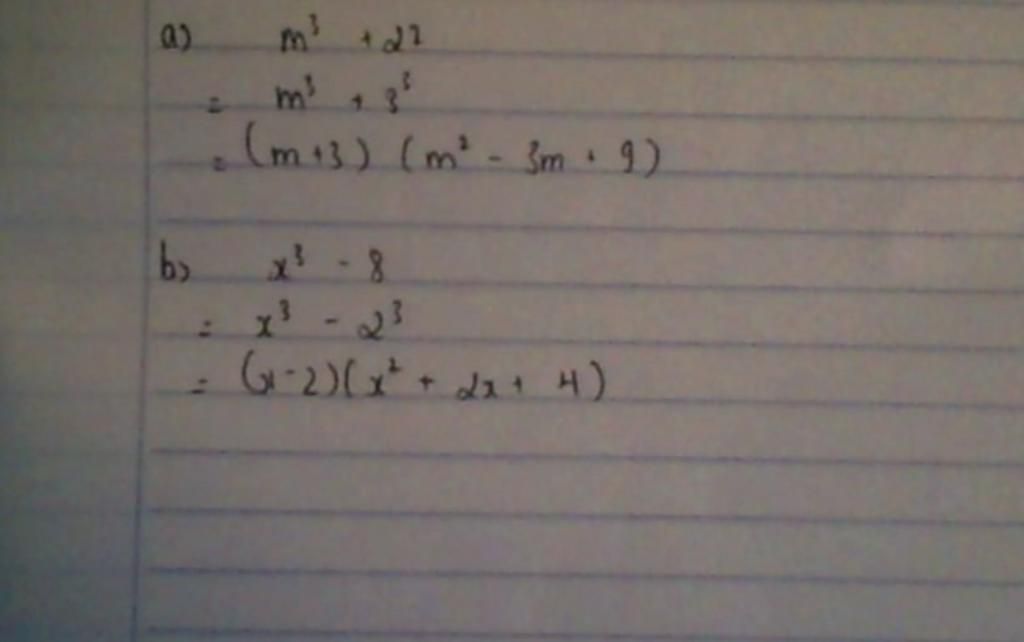 a) m³ + 27
= m³ + 3³
= (m+3) (m² - 3m + 9)
b) x³ - 8
= x³ - 2³
= (x-2)(x² + 2x + 4)